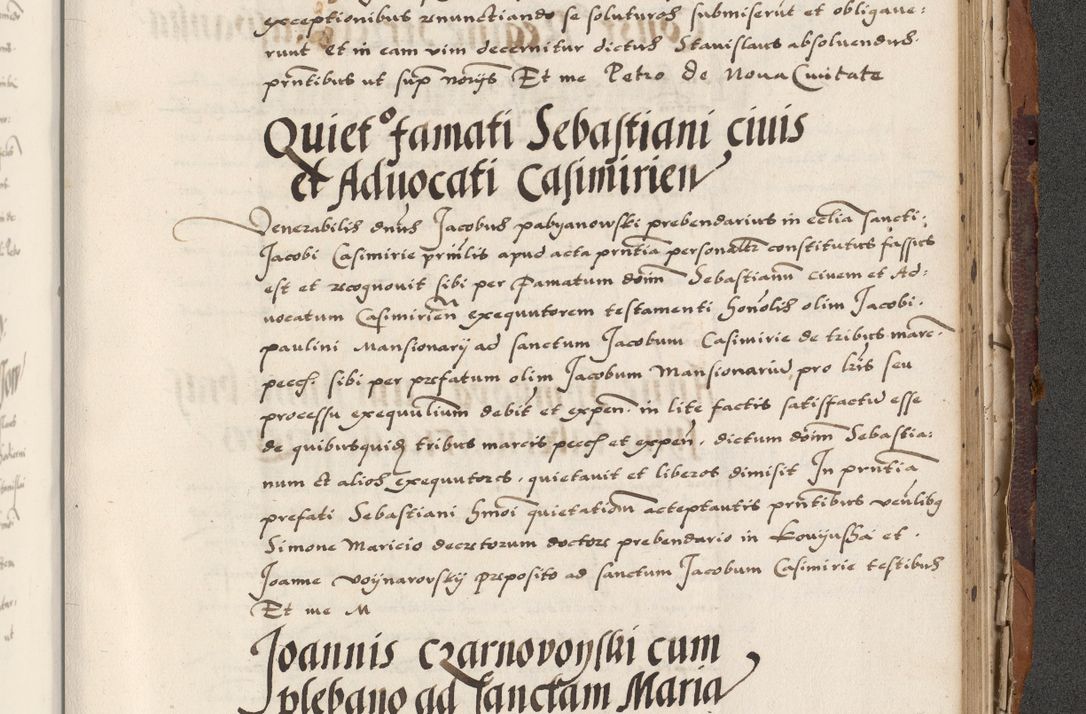 exceptionibus renunctiando se soluturos submiserūt et obligaue:
runt Et in eam vim decernitur dictus Stanislaus absoluendus.
pn̄tibus ut sup̄ norijs Et me Petro de Noua Ciuitate
Quietº famati Sebastiani ciuis
et Aduocati Casimirien
Venerabilis dnūs Jacobus pabyanowski prebendarius in ecl̄ia sancti:
Jacobi Casimirie prn̄lis apud acta prn̄tia personalr̄ constitutus fassus
est et recognouit sibi per Famatum dom̄ Sebastianū ciuem et Ad:
uocatum Casimirien̄ exequutorem testamenti hon̄olis olim Jacobi.
paulini Mansionarij ad sanctum Jacobum Casimirie de tribus marc.
pecc. sibi per prefatum olim Jacobum Mansionariū pro lrīs seu
processu exequutium debit̄ et expen̄. in lite factis satisfactū esse
de quibusquidꝫ tribus marcis pecc et expen̄. dictum dom̄ Sebastia:
num Et alios Exequutores. quietauit et liberos dimisit In prn̄tia
prefati Sebastiani hmōi quietatiōm acceptantis prn̄tibus ven̄libꝫ
Simone Maricio decretorum doctore prebendario in et.
Joanne Voynarovskij preposito ad sanctum Jacobum Casimirie testibus
Et me M
Joannis Czarnovoyski cum
plebano ad sanctam Maria